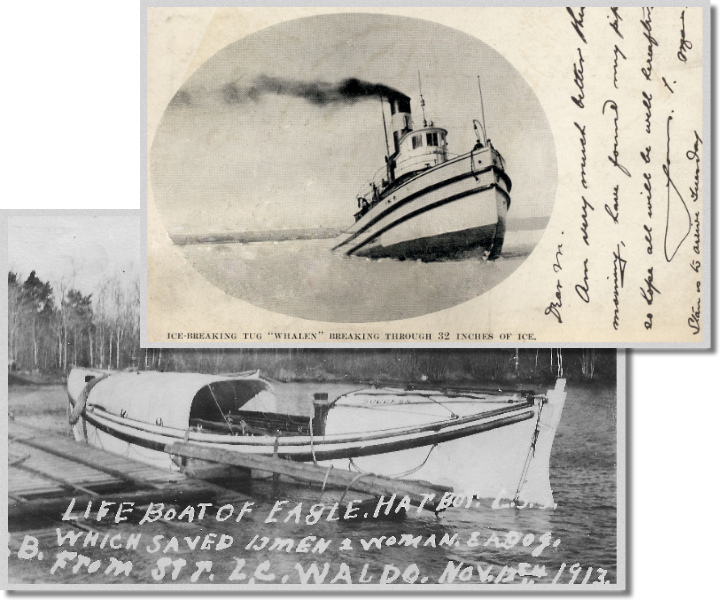 ICE-BREAKING TUG "WHALEN" BREAKING THROUGH 32 INCHES OF ICE.
Dear M.
Am very much better this
morning, have found my pipe
so hope all will be well hereafter.
Stan is to arrive Sunday
LIFE BOAT OF EAGLE. HARBOR. L.S.S.
WHICH SAVED 13 MEN 2 WOMAN. & A DOG.
FROM STR. L.C. WALDO. NOV. 12TH 1913.
B.